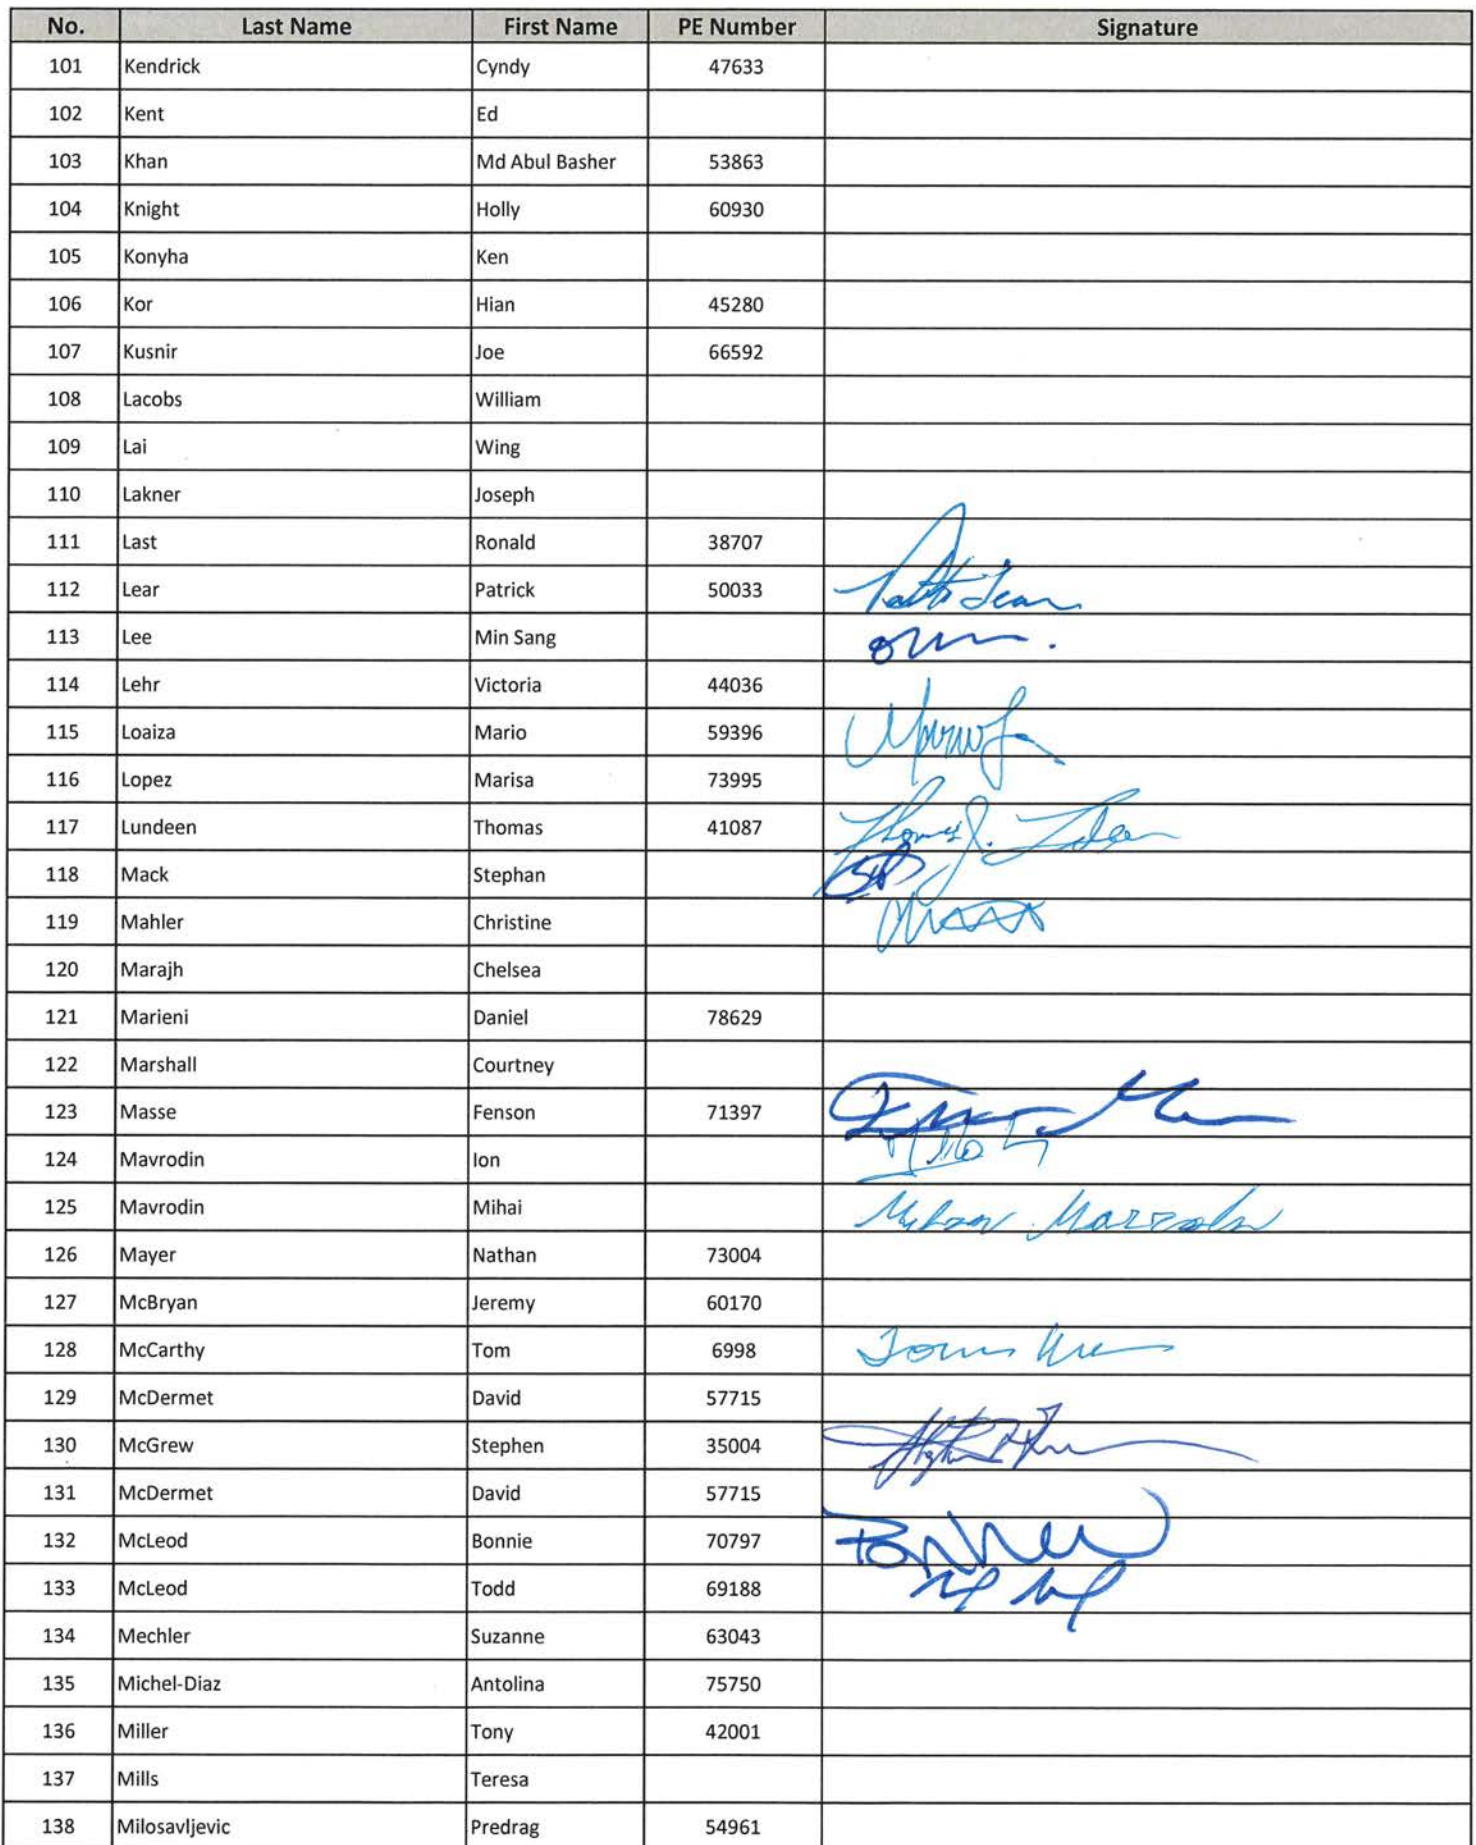 No. Last Name First Name PE Number Signature
101 Kendrick Cyndy 47633
102 Kent Ed
103 Khan Md Abul Basher 53863
104 Knight Holly 60930
105 Konyha Ken
106 Kor Hian 45280
107 Kusnir Joe 66592
108 Lacobs William
109 Lai Wing
110 Lakner Joseph
111 Last Ronald 38707
112 Lear Patrick 50033
113 Lee Min Sang
114 Lehr Victoria 44036
115 Loaiza Mario 59396
116 Lopez Marisa 73995
117 Lundeen Thomas 41087
118 Mack Stephan
119 Mahler Christine
120 Marajh Chelsea
121 Marieni Daniel 78629
122 Marshall Courtney
123 Masse Fenson 71397
124 Mavrodin Ion
125 Mavrodin Mihai
126 Mayer Nathan 73004
127 McBryan Jeremy 60170
128 McCarthy Tom 6998
129 McDermet David 57715
130 McGrew Stephen 35004
131 McDermet David 57715
132 McLeod Bonnie 70797
133 McLeod Todd 69188
134 Mechler Suzanne 63043
135 Michel-Diaz Antolina 75750
136 Miller Tony 42001
137 Mills Teresa
138 Milosavljevic Predrag 54961